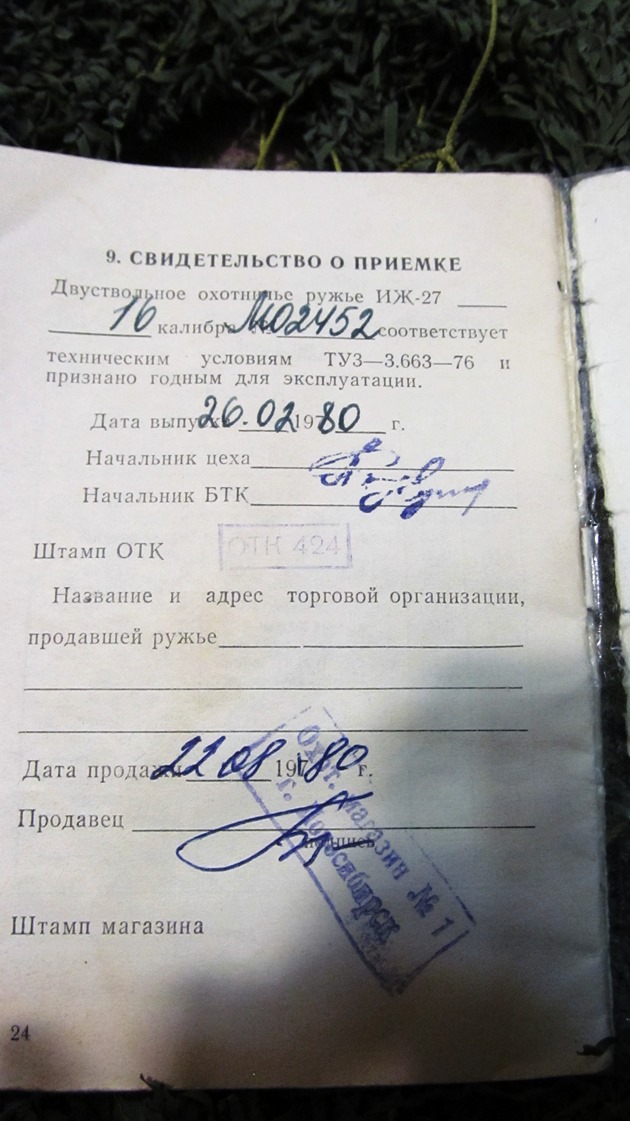 9. СВИДЕТЕЛЬСТВО О ПРИЕМКЕ
Двуствольное охотничье ружье ИЖ-27
16 калибра № М02452 соответствует
техническим условиям ТУЗ—3.663—76 и
признано годным для эксплуатации.
Дата выпуска 26.02 1980 г.
Начальник цеха
Начальник БТК
Штамп ОТК ОТК 424
Название и адрес торговой организации,
продавшей ружье
Дата продажи 22 08 197 80 г.
Продавец
подпись
Охот. магазин № 1
г. Новосибирск
Штамп магазина
24